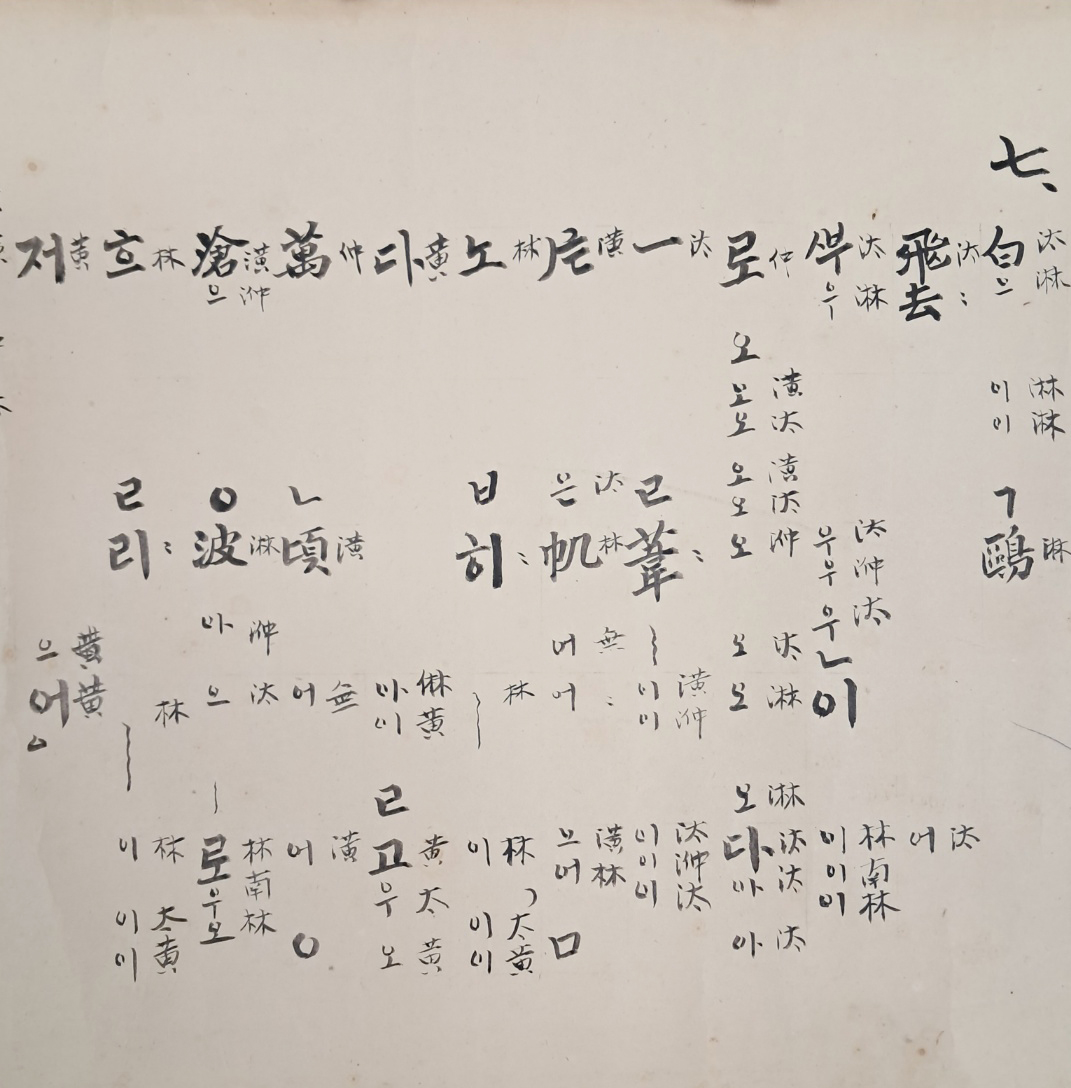 七、
白으 이이 ㄱ鷗
汰淋 淋淋 淋
飛去 어
汰: 汰
ᄲᅮ우 우우우ㄴ이 이이이
汰淋 汰㳞汰 林南林
로 오 오오 오오오 오 오 오다아 아
仲 潢汰 潢汰㳞 汰 淋 淋汰汰 汰
一 ㄹ葦 이이 이이이
汰 : 潢㳞 汰㳞汰
는 은帆 어 어 으어 ㅁ
潢 汰林 無 : 潢林
노 ㅂ히 이 이이
林 : 林 林 太黃
다 아이 ㄹ고우 오
黃 㑣黃 黃太黃
萬 ㄴ頃 어 어 ㅇ
仲 潢 無 潢
滄으 ㅇ波 아 으 로우오
潢㳞 淋 㳞 汰 林南林
흐 ㄹ리 이 이이
林 : 林 林 太黃
저 으어ㅇ
黃 黃黃